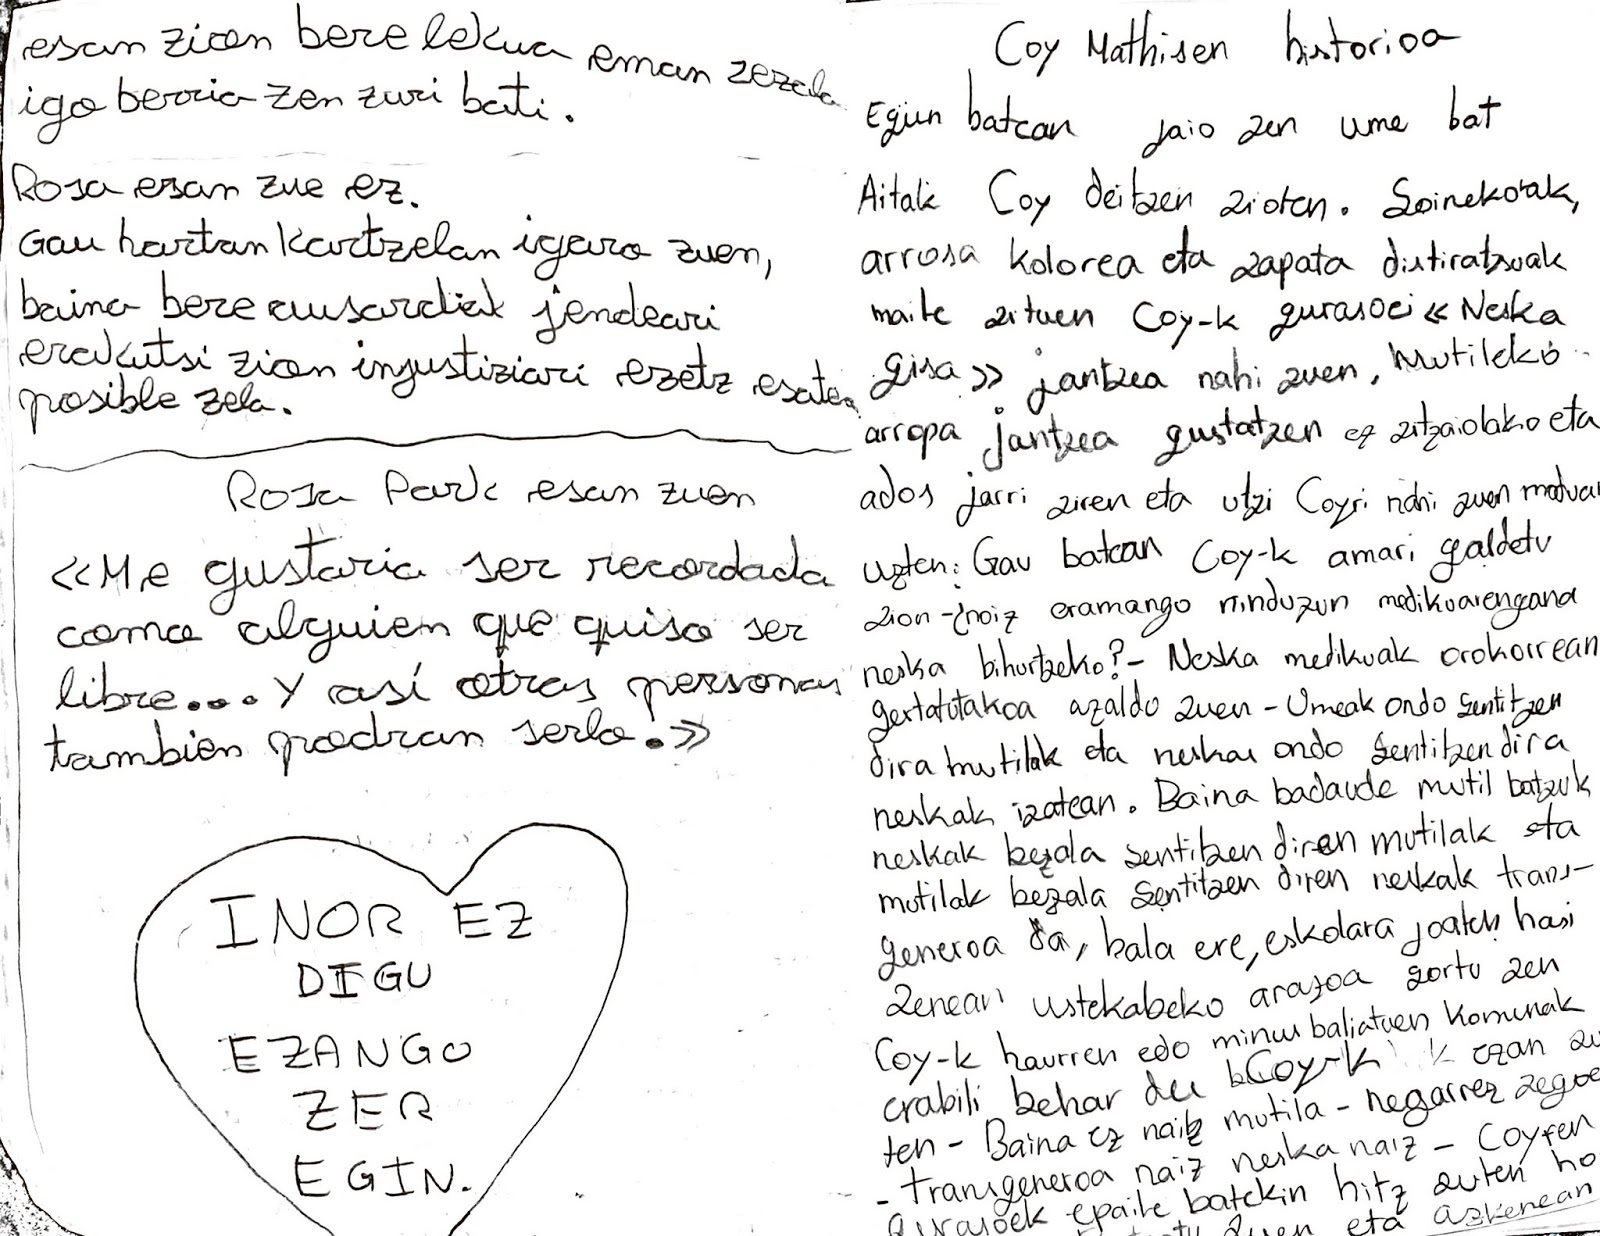 esan zion bere lekua eman zezala
igo berria zen zuri bati.
Rosa esan zue ez.
Gau hartan kartzelan igaro zuen,
baina bere ausardiak jendeari
erakutsi zion injustiziari ezetz esatea
posible zela.
Rosa Park esan zuen
«Me gustaria ser recordada
como alguien que quiso ser
libre.... Y así otras personas
tambien podran serlo.»
INOR EZ
DIGU
EZANGO
ZER
EGIN.
Coy Mathisen historioa
Egun batean jaio zen ume bat
Aitak Coy deitzen zioten. Soinekoak,
arrosa kolorea eta zapata distiratsuak
maite zituen Coy-k gurasoei «Neska
gisa» jantzea nahi zuen, mutileko
arropa jantzea gustatzen ez zitzaiolako eta
ados jarri ziren eta utzi Coyri nahi zuen moduan
uzten: Gau batean Coy-k amari galdetu
zion -¿noiz eramango ninduzun medikuarengana
neska bihurtzeko?- Neska medikuak orokorrean
gertatutakoa azaldu zuen - Umeak ondo sentitzen
dira mutilak eta neskak ondo sentitzen dira
neskak izatean. Baina badaude mutil batzuk
neskak bezala sentitzen diren mutilak eta
mutilak bezala sentitzen diren neskak trans-
generoa da, bala ere, eskolara joaten hasi
zenean ustekabeko arazoa gortu zen
Coy-k haurren edo minus baliatuen komunak
erabili behar du Coy-k ezan zu
ten - Baina ez naiz mutila - negarrez zegoe
- Transgeneroa naiz neska naiz - Coyren
gurasoek epaile batekin hitz zuten ho
zuen eta azkenean